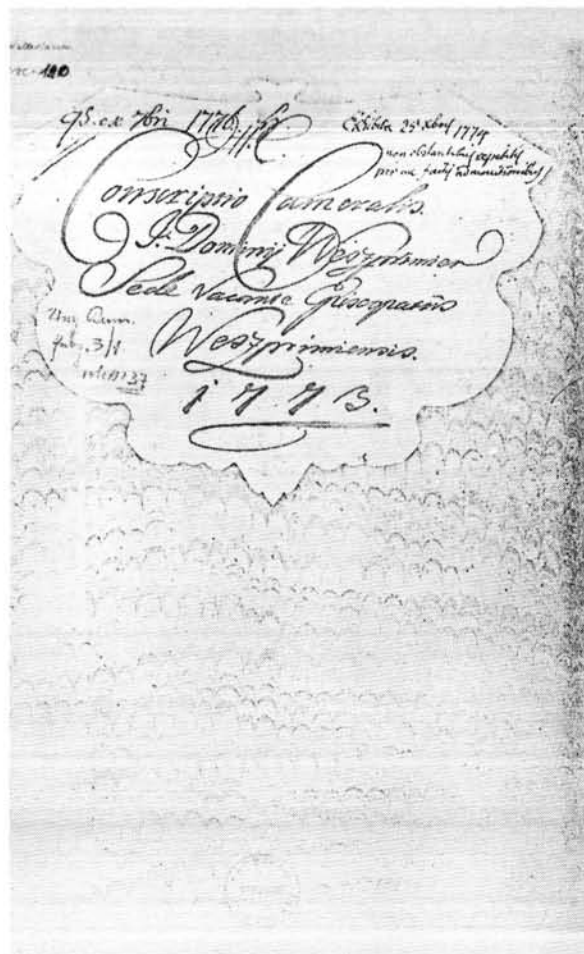 95. ex 7bri 1776.
Exhibita 25 Xbris 1774
non obstantibus repetitis
per me factis admonitionibus
Conscriptio Cameralis
Dominij Weszprimien
Sede Vacante Episcopatus
Weszprimiensis.
1773.
37